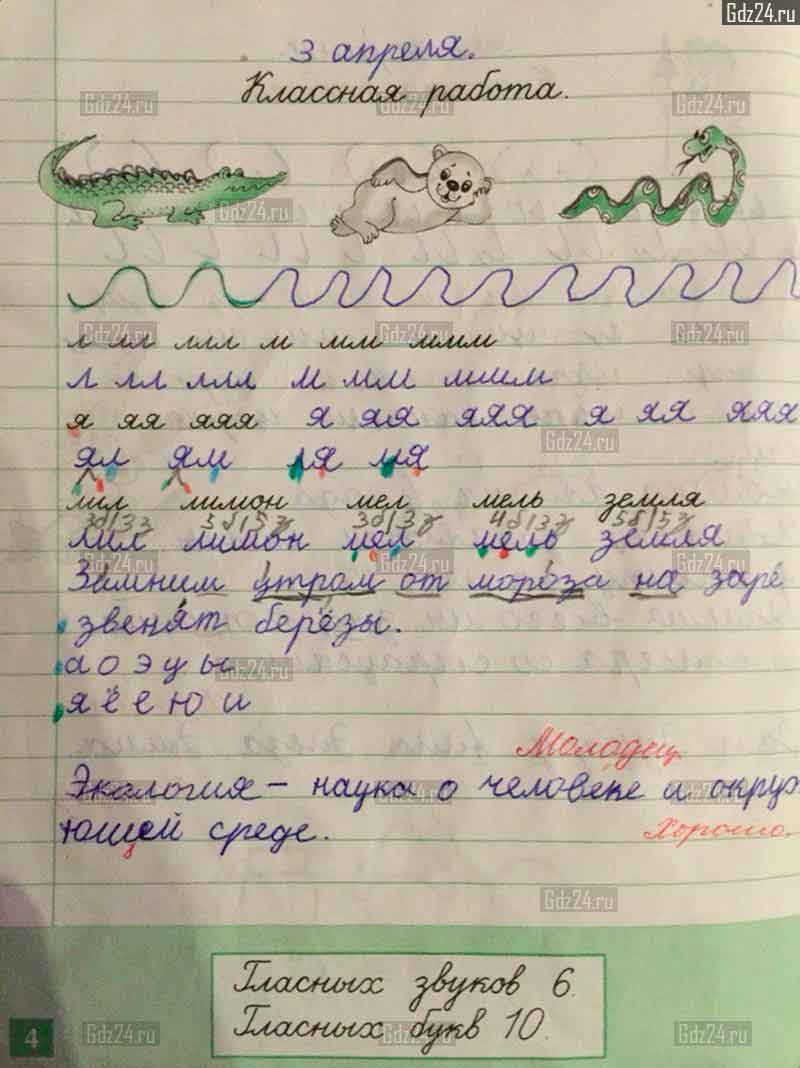 Gdz24.ru
3 апреля.
Классная работа.
л лл ллл м мм ммм
л лл ллл м мм ммм
я яя яяя я яя яяя я яя яяя
ял ям ля мя
лил лимон мел мель земля
3б/3з 5б/5з 3б/3з 4б/3з 5б/5з
лил лимон мел мель земля
Зимним утром от мороза на заре
звенят берёзы.
а о э у ы
я ё е ю и
Молодец
Экология – наука о человеке и окруж
ющей среде.
Хорошо.
Гласных звуков 6.
Гласных букв 10.
4